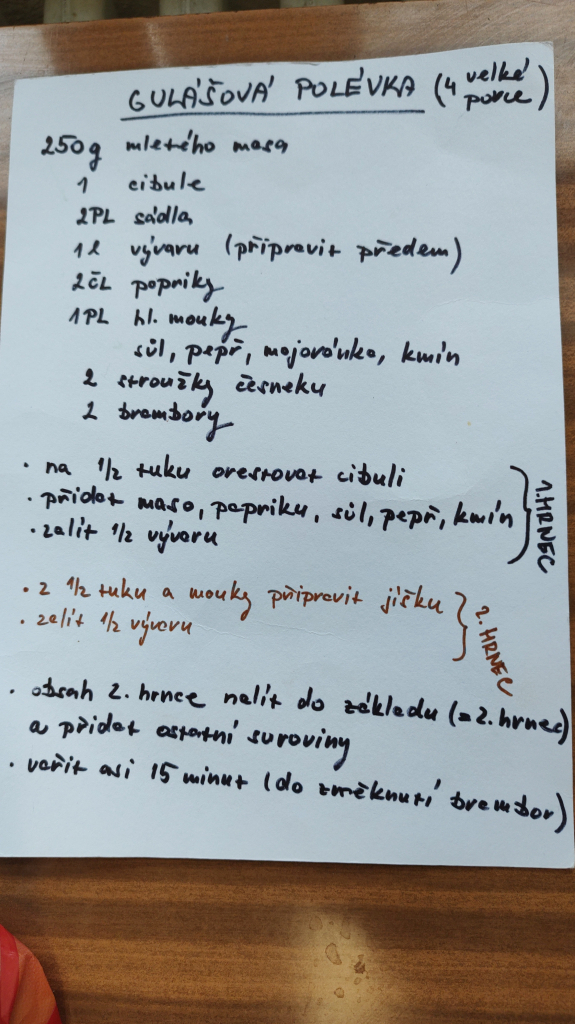 GULÁŠOVÁ POLÉVKA (4 velké porce)
250g mletého masa
1 cibule
2PL sádla
1l vývaru (připravit předem)
2čL papriky
1PL hl. mouky
sůl, pepř, majoránka, kmín
2 stroužky česneku
2 brambory
• na 1/2 tuku orestovat cibuli
• přidat maso, papriku, sůl, pepř, kmín
• zalít 1/2 vývaru
1. HRNEC
• z 1/2 tuku a mouky připravit jíšku
• zalít 1/2 vývaru
2. HRNEC
• obsah 2. hrnce nalít do základu (=2. hrnec)
a přidat ostatní suroviny
• vařit asi 15 minut (do změknutí brambor)